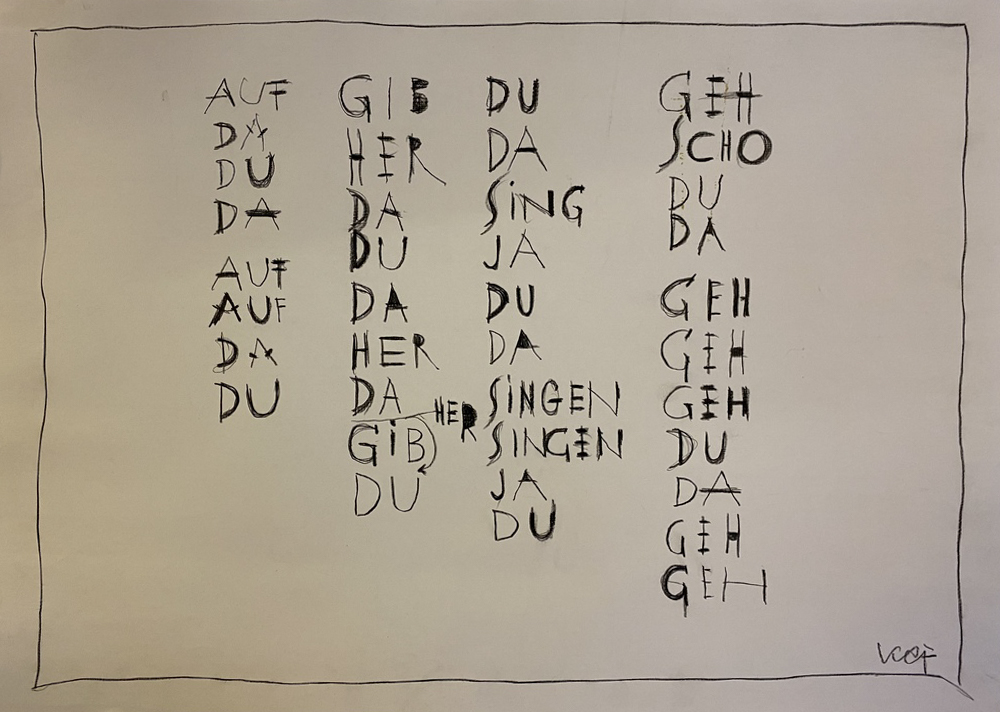 AUF
DA
DU
DA
AUF
AUF
DA
DU
GIB
HER
DA
DU
DA
HER
DA
HER
GiB
DU
DU
DA
SiNG
JA
DU
DA
SiNGEN
SINGEN
JA
DU
GEH
SCHO
DU
DA
GEH
GEH
GEH
DU
DA
GEH
GEH